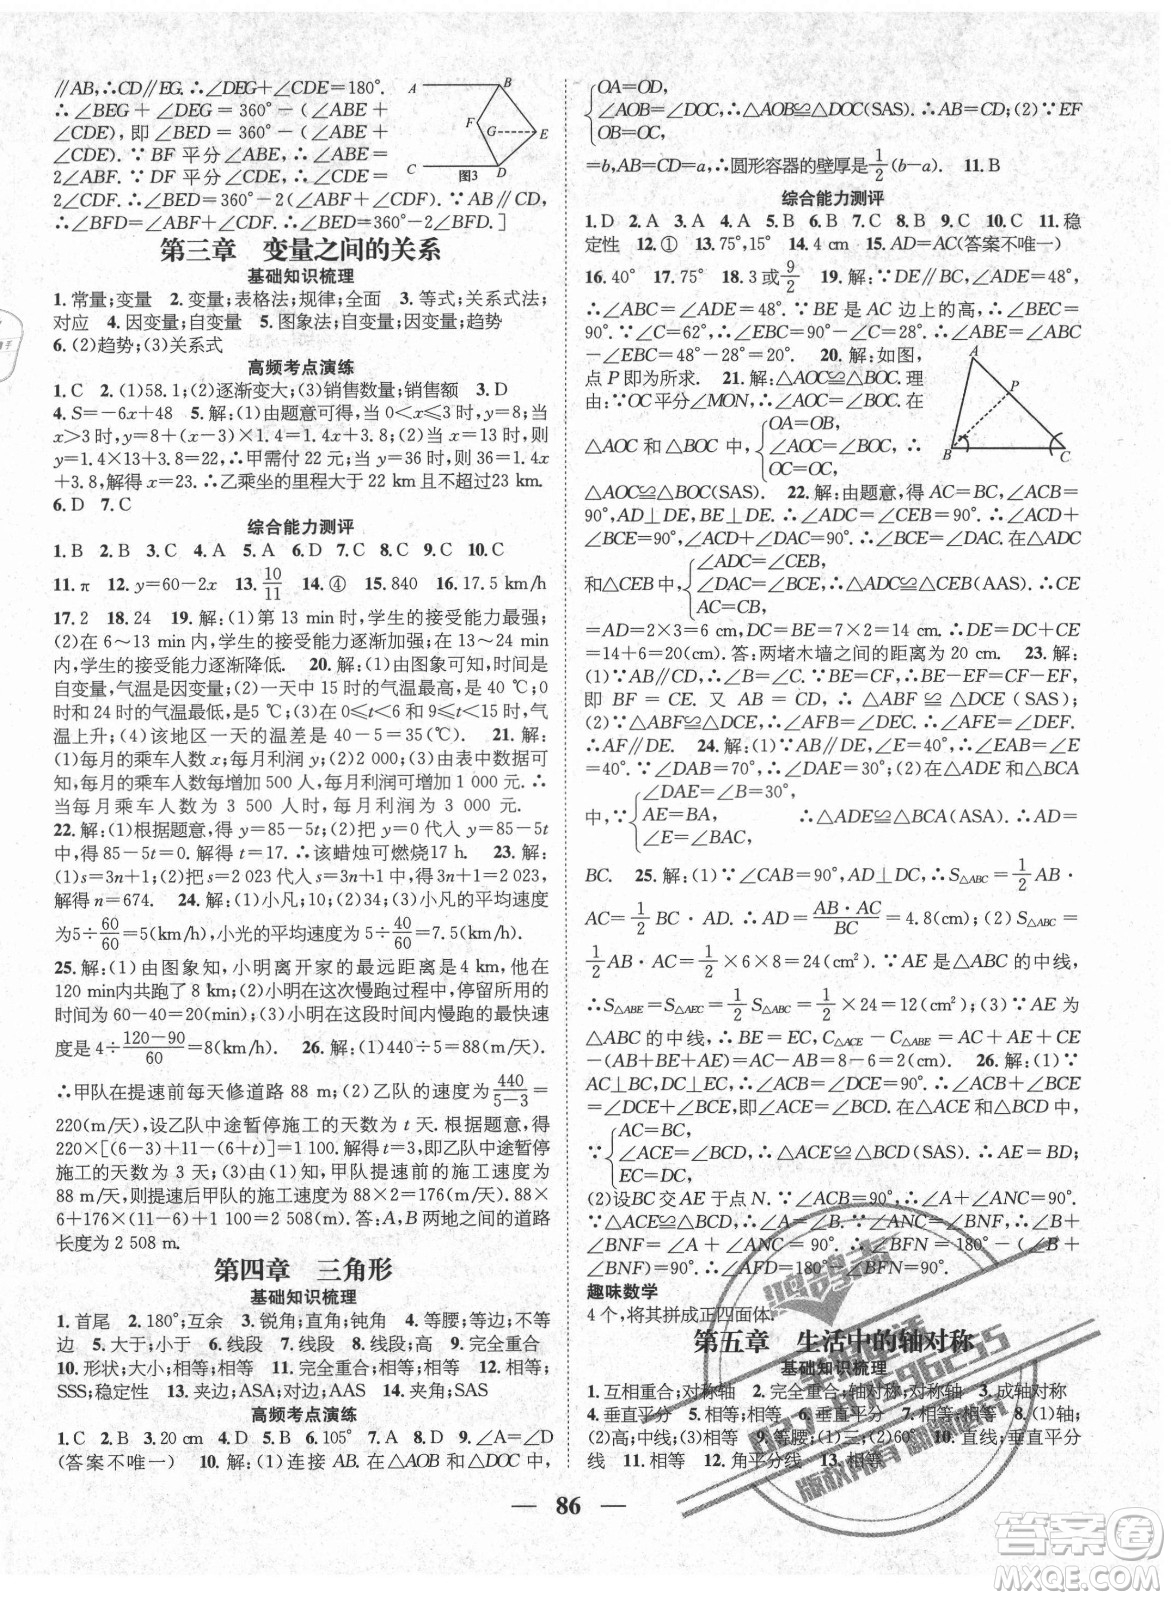 ∥AB,∴CD∥EG.∴∠DEG+∠CDE=180°.
∴∠BEG+∠DEG=360°-(∠ABE+
∠CDE),即∠BED=360°-(∠ABE+
∠CDE).∵BF平分∠ABE,∴∠ABE=
2∠ABF.∵DF平分∠CDE,∴∠CDE=
2∠CDF.∴∠BED=360°-2(∠ABF+∠CDF).∵AB∥CD,
∴∠BFD=∠ABF+∠CDF.∴∠BED=360°-2∠BFD.]
A B F G E C D 图3
第三章 变量之间的关系
基础知识梳理
1.常量;变量 2.变量;表格法;规律;全面 3.等式;关系式法;
对应 4.因变量;自变量 5.图象法;自变量;因变量;趋势
6.(2)趋势;(3)关系式
高频考点演练
1.C 2.(1)58.1;(2)逐渐变大;(3)销售数量;销售额 3.D
4.S=-6x+48 5.解:(1)由题意可得,当0<x≤3时,y=8;当
x>3时,y=8+(x-3)×1.4=1.4x+3.8;(2)当x=13时,则
y=1.4×13+3.8=22,∴甲需付22元;当y=36时,则36=1.4x
+3.8,解得x=23.∴乙乘坐的里程大于22 km且超过23 km.
6.D 7.C
综合能力测评
1.B 2.B 3.C 4.A 5.A 6.D 7.D 8.C 9.C 10.C
11.π 12.y=60-2x 13.10/11 14.④ 15.840 16.17.5 km/h
17.2 18.24 19.解:(1)第13 min时,学生的接受能力最强;
(2)在6~13 min内,学生的接受能力逐渐加强;在13~24 min
内,学生的接受能力逐渐降低. 20.解:(1)由图象可知,时间是
自变量,气温是因变量;(2)一天中15时的气温最高,是40 ℃;0
时和24时的气温最低,是5 ℃;(3)在0≤t<6和9≤t<15时,
气温上升;(4)该地区一天的温差是40-5=35(℃). 21.解:
(1)每月的乘车人数x;每月利润y;(2)观察表中数据可知,每月
的乘车人数每增加500人,每月利润可增加1 000元.∴
当每月乘车人数为3 500人时,每月利润为3 000元.
22.解:(1)根据题意,得y=85-5t;(2)把y=0代入y=85-5t
中,得85-5t=0.解得t=17.∴该蜡烛可燃烧17 h. 23.解:
(1)s=3n+1;(2)把s=2 023代入s=3n+1,得3n+1=2 023,
解得n=674. 24.解:(1)小凡;10;(2)34;(3)小凡的平均速度
为5÷60/60=5(km/h),小光的平均速度为5÷40/60=7.5(km/h).
25.解:(1)由图象知,小明离开家的最远距离是4 km,他在
120 min内共跑了8 km;(2)小明在这次慢跑过程中,停留所用的
时间为60-40=20(min);(3)小明在这段时间内慢跑的最快速
度是4÷(120-90)/60=8(km/h). 26.解:(1)440÷5=88(m/天),
∴甲队在提速前每天修道路88 m;(2)乙队的速度为440/(5-3)=
220(m/天),设乙队中途暂停施工的天数为t天.根据题意,得
220×[(6-3)+11-(6+t)]=1 100.解得t=3,即乙队中途暂停
施工的天数为3天;(3)由题意知,甲队提速前的速度为
88 m/天,则提速后甲队施工的速度为88×2=176(m/天).88×
6+176×(11-6)+1 100=2 508(m).答:A,B两地之间的道路
长度为2 508 m.
第四章 三角形
基础知识梳理
1.首尾 2.180°;互余 3.锐角;直角;钝角 4.等腰;等边;不等
边 5.大于;小于 6.线段 7.线段;高 8.线段;高 9.完全重合
10.形状;大小;相等;相等 11.完全重合;相等;相等 12.相等;
SSS;稳定性 13.夹边;ASA;对边;AAS 14.夹角;SAS
高频考点演练
1.C 2.B 3.20 cm 4.D 5.C 6.105° 7.A 8.C 9.∠A=∠D
(答案不唯一) 10.解:(1)连接AB.在△AOB和△DOC中,
{OA=OD,
∠AOB=∠DOC,∴△AOB≌△DOC(SAS).∴AB=CD;(2)∵EF
OB=OC,
=b,AB=CD=a,∴圆形容器的壁厚是1/2(b-a). 11.B
综合能力测评
1.D 2.A 3.A 4.A 5.B 6.B 7.C 8.B 9.C 10.C 11.稳
定性 12.① 13.75°,15° 14.4 cm 15.AD=AC(答案不唯一)
16.40° 17.75° 18.3或9/2 19.解:∵DE∥BC,∠ADE=48°,
∴∠ABC=∠ADE=48°.∵BE是AC边上的高,∴∠BEC=
90°.∵∠C=62°,∴∠EBC=90°-∠C=28°.∴∠ABE=∠ABC
-∠EBC=48°-28°=20°. 20.解:如图,
点P即为所求. 21.解:△AOC≌△BOC.理
由:∵OC平分∠MON,∴∠AOC=∠BOC.在
△AOC和△BOC中,{OA=OB,
∠AOC=∠BOC,∴
OC=OC,
A P B C
△AOC≌△BOC(SAS). 22.解:由题意,得AC=BC,∠ACB=
90°,AD⊥DE,BE⊥DE,∴∠ADC=∠CEB=90°.∴∠ACD+
∠BCE=90°,∠ACD+∠DAC=90°.∴∠BCE=∠DAC.在△ADC
和△CEB中,{∠ADC=∠CEB,
∠DAC=∠BCE,∴△ADC≌△CEB(AAS).∴CE
AC=CB,
=AD=2×3=6 cm,DC=BE=7×2=14 cm.∴DE=DC+CE
=14+6=20(cm).答:两堵木墙之间的距离为20 cm. 23.解:
(1)∵AB∥CD,∴∠B=∠C.∵BE=CF,∴BE-EF=CF-EF,
即BF=CE.又AB=CD,∴△ABF≌△DCE(SAS);
(2)∵△ABF≌△DCE,∴∠AFB=∠DEC.∴∠AFE=∠DEF.
∴AF∥DE. 24.解:(1)∵AB∥DE,∠E=40°,∴∠EAB=∠E=
40°.∵∠DAB=70°,∴∠DAE=30°;(2)在△ADE和△BCA
中,{∠DAE=∠B=30°,
AE=BA,
∠E=∠BAC=40°, ∴△ADE≌△BCA(ASA).∴AD=
BC. 25.解:(1)∵∠CAB=90°,AD⊥DC,∴S△ABC=1/2 AB·
AC=1/2 BC·AD.∴AD=AB·AC/BC=4.8(cm);(2)S△ABC=
1/2 AB·AC=1/2×6×8=24(cm²).∵AE是△ABC的中线,
∴S△ABE=S△AEC=1/2 S△ABC=1/2×24=12(cm²);(3)∵AE为
△ABC的中线,∴BE=EC,C△ACE-C△ABE=AC+AE+CE
-(AB+BE+AE)=AC-AB=8-6=2(cm). 26.解:(1)∵
AC⊥BC,DC⊥EC,∴∠ACB=∠DCE=90°.∴∠ACB+
∠BCE=∠DCE+∠BCE,即∠ACE=∠BCD.在△ACE和△BCD中,
{AC=BC,
∠ACE=∠BCD,∴△ACE≌△BCD(SAS).∴AE=BD;
EC=DC,
(2)设BC交AE于点N.∵∠ACB=90°,∴∠A+∠ANC=90°.
∵△ACE≌△BCD,∴∠A=∠B.∵∠ANC=∠BNF,∴∠B+
∠BNF=∠A+∠ANC=90°.∴∠BFN=180°-(∠B+
∠BNF)=90°.∴∠AFD=180°-∠BFN=90°.
趣味数学
4个,将其拼成正四面体.
第五章 生活中的轴对称
基础知识梳理
1.互相重合;对称轴 2.完全重合;轴对称;对称轴 3.成轴对称
4.垂直平分 5.相等;相等 6.垂直平分 7.相等 8.(1)轴;
(2)高;中线;重合;(3)相等 9.等腰;(2)60° 10.直线;垂直平分
线 11.相等 12.角平分线 13.相等
— 86 —
答案圈
MXQE.COM